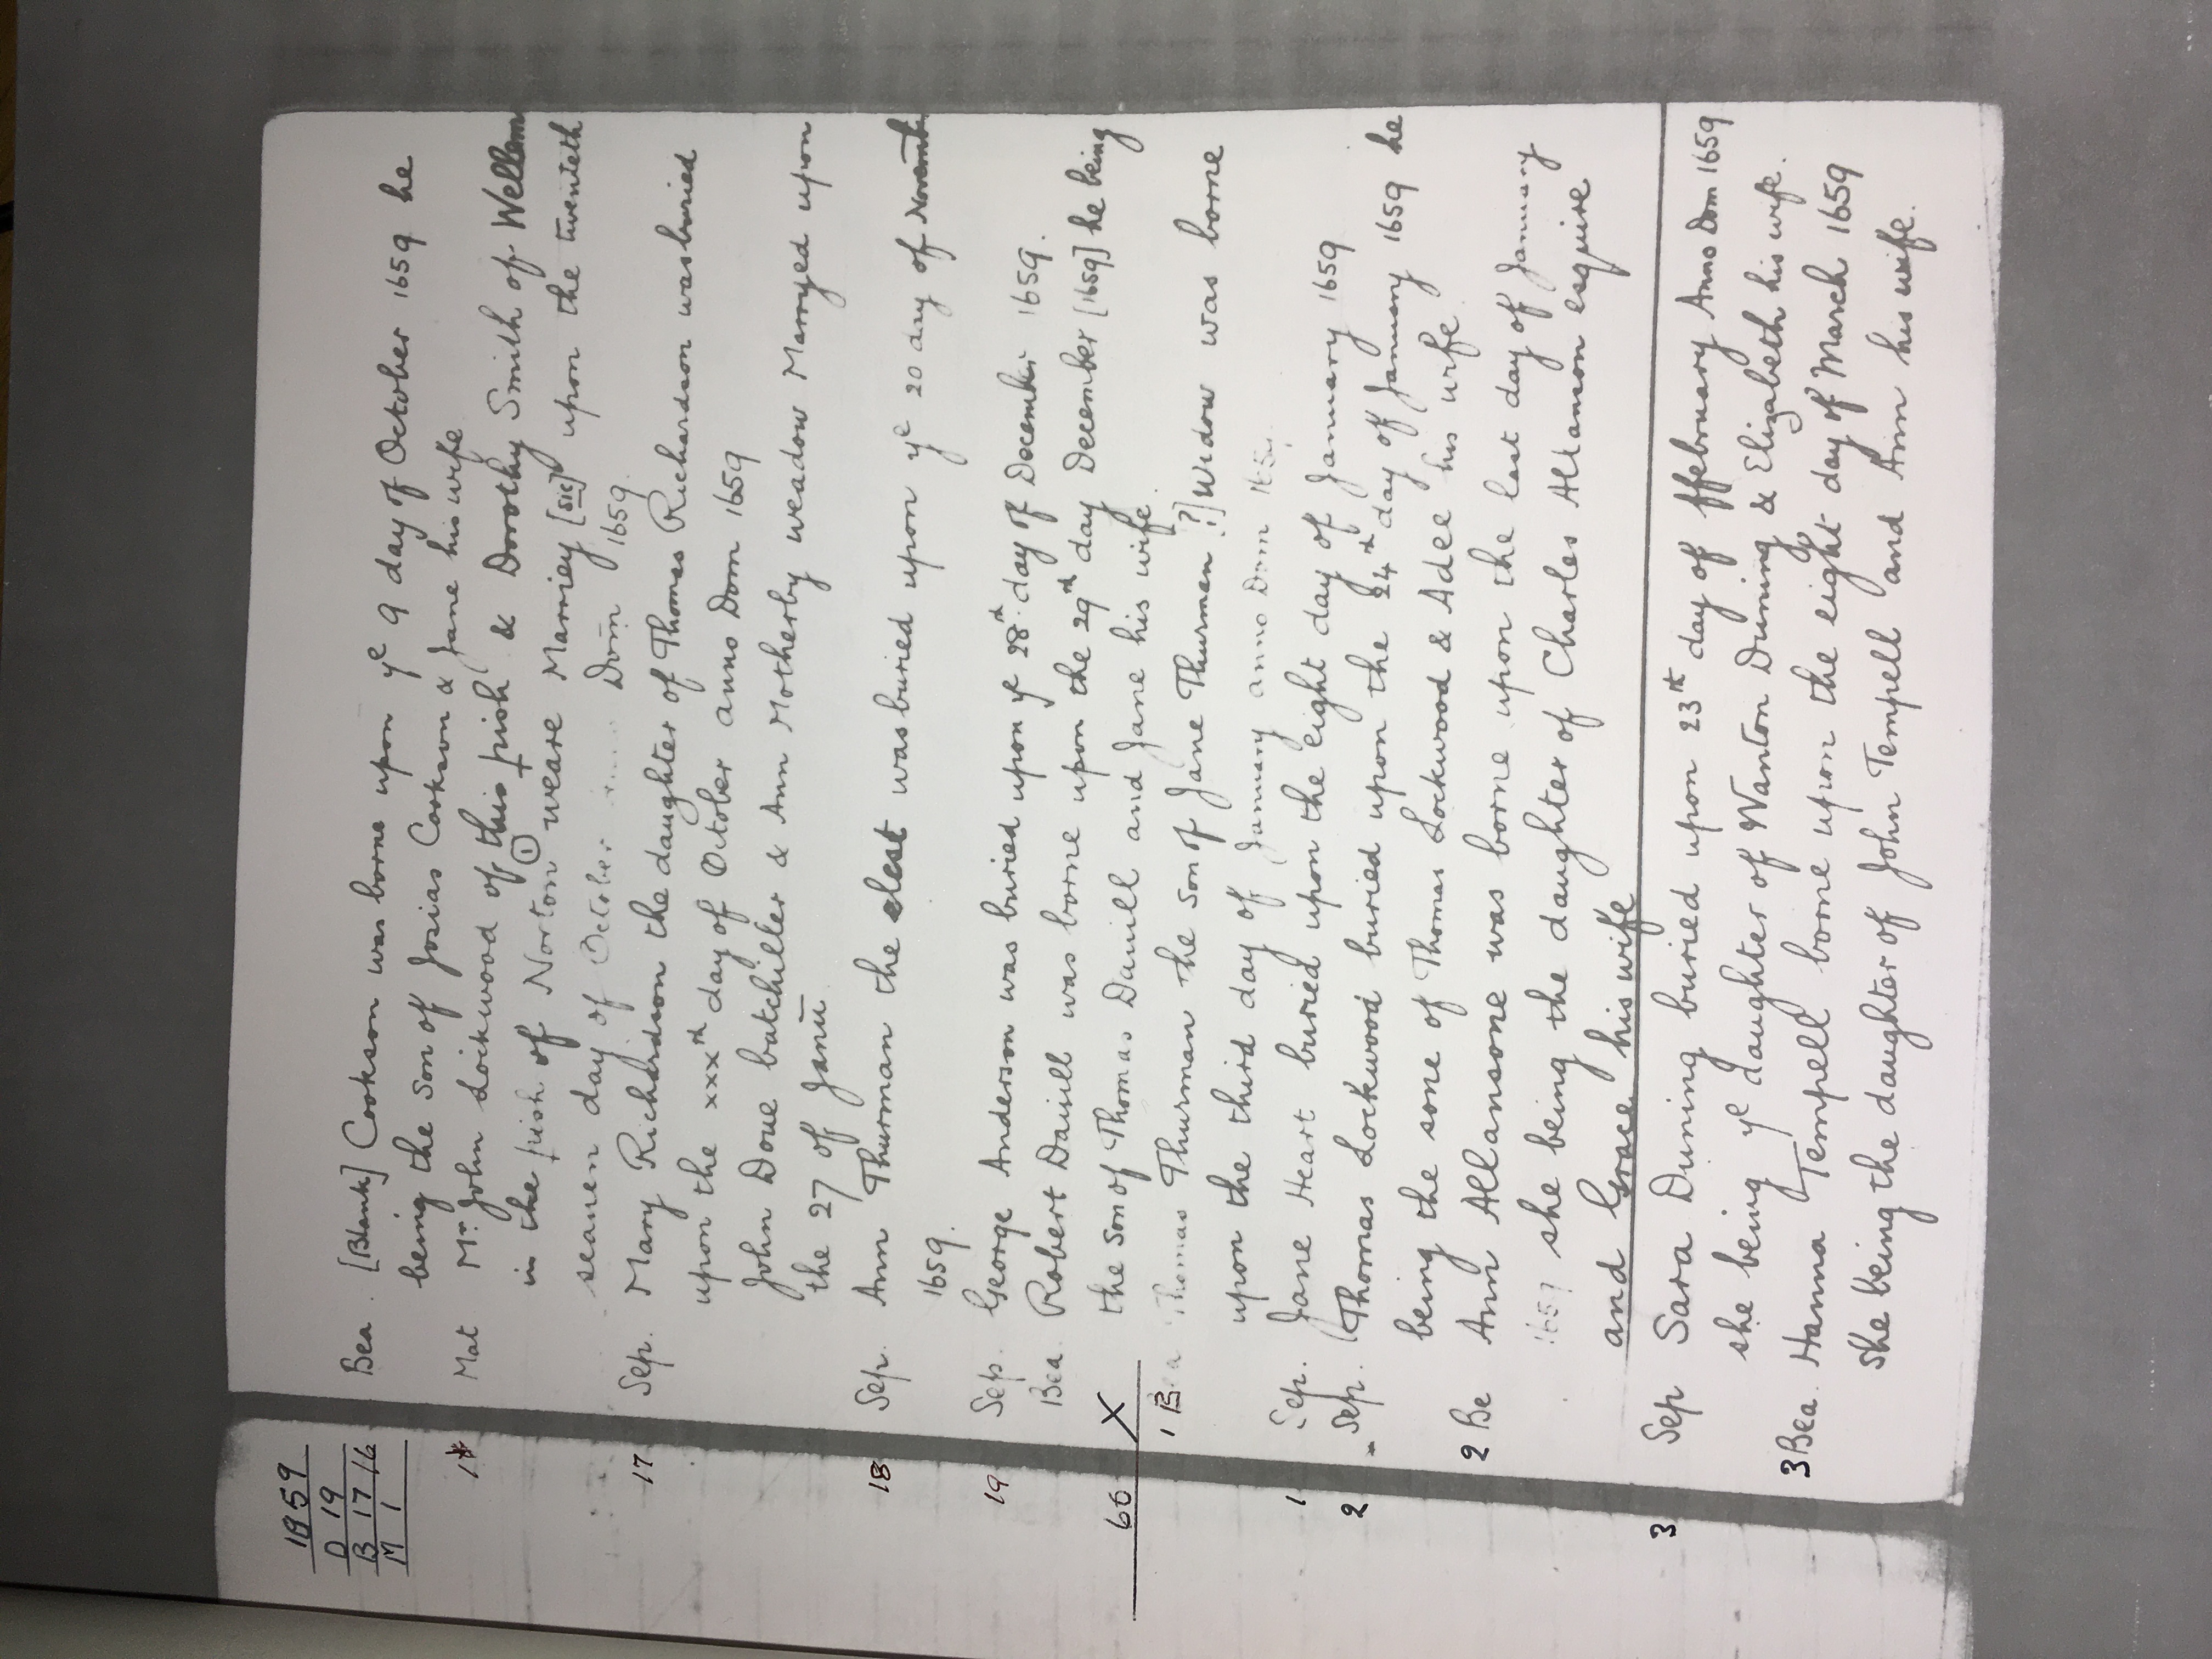 1859
D 19
B 17 16
M 1
Bea. [Blank] Cookson was borne upon ye 9 day of October 1659 he
being the son of Josias Cookson & Jane his wife
Mat Mr. John Lockwood of this pish & Dorothy Smith of Wellem
in the pish of Norton ① weare Marriey [sic] upon the twenteth
seauen day of October Dom 1659.
17 Sep. Mary Richardson the daughter of Thomas Richardson was buried
upon the xxxth day of October anno Dom 1659
John Doue batchiller & Ann Motherby weadow Marryed upon
the 27 of Janu
18 Sep. Ann Thurman the elest was buried upon ye 20 day of Novemb
1659.
19 Sep. George Anderson was buried upon ye 28th day of December 1659.
Bea. Robert Danill was borne upon the 29th day December [1659] he being
the son of Thomas Danill and Jane his wife.
60 X
1 Bea Thomas Thurman the son of Jane Thurman [?] Widow was borne
upon the third day of January anno Dom 165
1 Sep. Jane Heart buried upon the eight day of January 1659
2 Sep. Thomas Lockwood buried upon the 24th day of January 1659 he
being the sone of Thomas Lockwood & Adee his wife
2 Be Ann Allansone was borne upon the last day of January
1659 she being the daughter of Charles Allanson esquire
and Grace his wife
3 Sep Sara Duning buried upon 23th day of ffebruary Anno Dom 1659
she being ye daughter of Wanton Duning & Elizabeth his wife.
3 Bea. Hanna Tempell borne upon the eight day of March 1659
she being the daughter of John Tempell and Ann his wife.